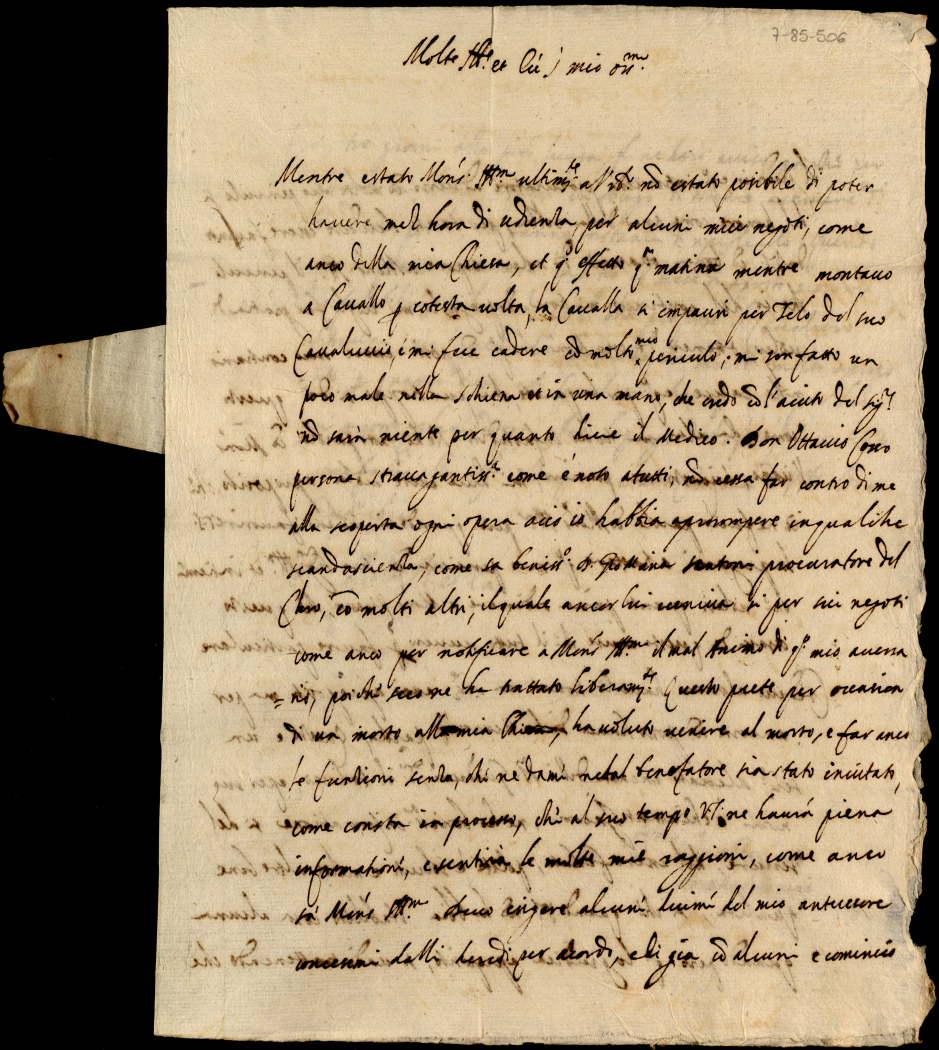 7-85-506
Molte Ill.re et S.r mio oss.mo
Mentre estato Mons.r Ill.mo ultim.te nō estato possibile di poter
havere mez hora di udienza, per alcuni miei negoti, come
anco della mia Chiesa, et q.o effetto q.a matina mentre montavo
a Cavallo p cotesta volta, la Cavalla si impaurì per Zelo del suo
Cavaluccio è mi fece cadere cō molto mio periculo; mi son fatto un
poco male nella schiena et in una mano, che credo cō l'aiuto del Sig.r
nō sarà niente per quanto dice il Medico. Don Ottavio
persona stravagantiss.a come è noto atutti, nō cessa far contro di me
alla scoperta ogni opera acciò io habbia aprorompere inqualche
come sa beniss.o procuratore del
Clero, cō molti altri, ilquale ancor lui veniva si per sui negoti
come anco per notificare a Mons.r Ill.mo il mal Animo di q.o mio aversa
=rio, poichè seco ne ha trattato liberam.te. Questo prete per occasion
di un morto alla mia ha voluto venire al morto, e far anco
le funzioni senza, chè ne dami nè dal benefatore sia stato invitato,
come consta in processo, chè al suo tempo V.S. ne haverà piena
informationi, e sentirà le molte miè raggioni, come anco
sà Mons.r Ill.mo Devo esigere alcuni decimi del mio antecesore
concessimi dalli heredi per acordo, e di già cō alcuni e cominciò